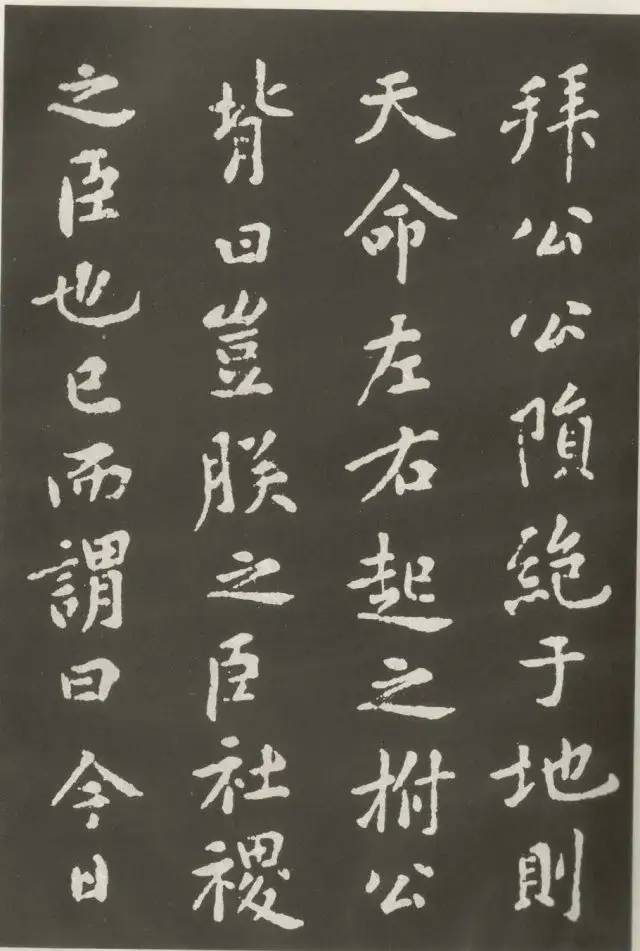 拜公公隕絕于地則
天命左右起之拊公
背曰豈朕之臣社稷
之臣也已而謂曰今日